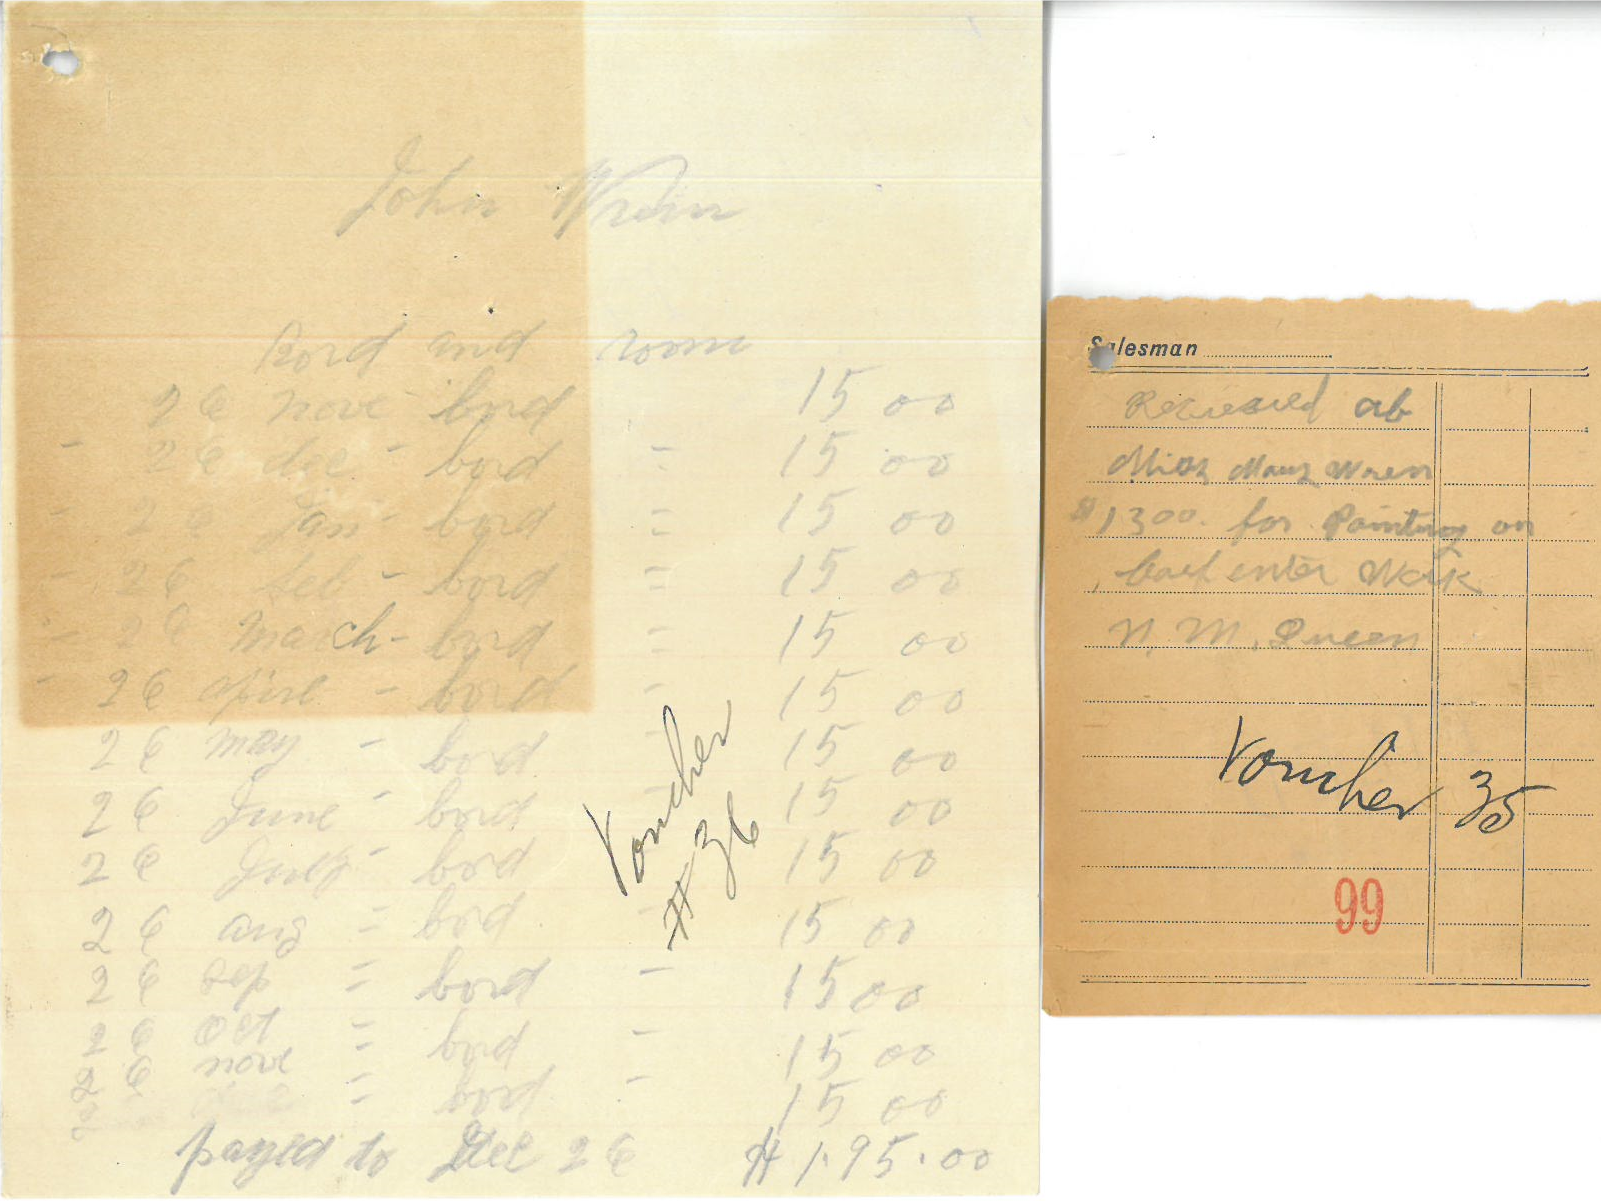 John Wren
Bord and room
26 nove bord 15 00
- 26 dec - bord = 15 00
- 26 Jan - bord = 15 00
- 26 feb - bord = 15 00
- 26 March - bord = 15 00
- 26 Apirl - bord - 15 00
26 may - bord - 15 00
26 June - bord - 15 00
26 July - bord 15 00
26 aug = bord - 15 00
26 sep = bord - 15 00
26 oct = bord - 15 00
26 nove = bord - 15 00
payed to Dec 26 # 1.95.00
Voucher
# 36
Salesman
Recieved ab
Miss Mary Wren
$ 1300. for Painting on
enter Work
N. M. Queen
Voucher 35
99